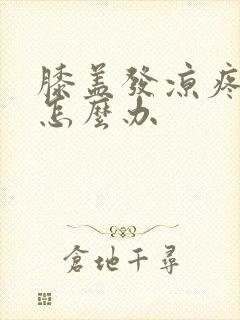 膝盖發凉疼
怎麼办
倉地千尋